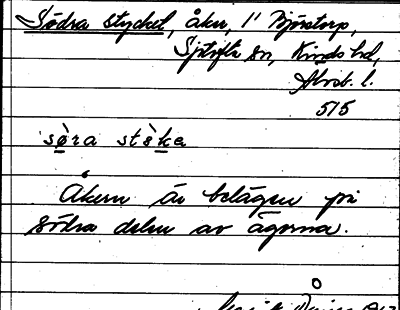 Södra stycket, åker, i Björstorp,
sn, Kinds hd,
Älvsb. l.
515
sö̀ra stö̀ka
Åkern är belägen på
södra delen av ägorna.